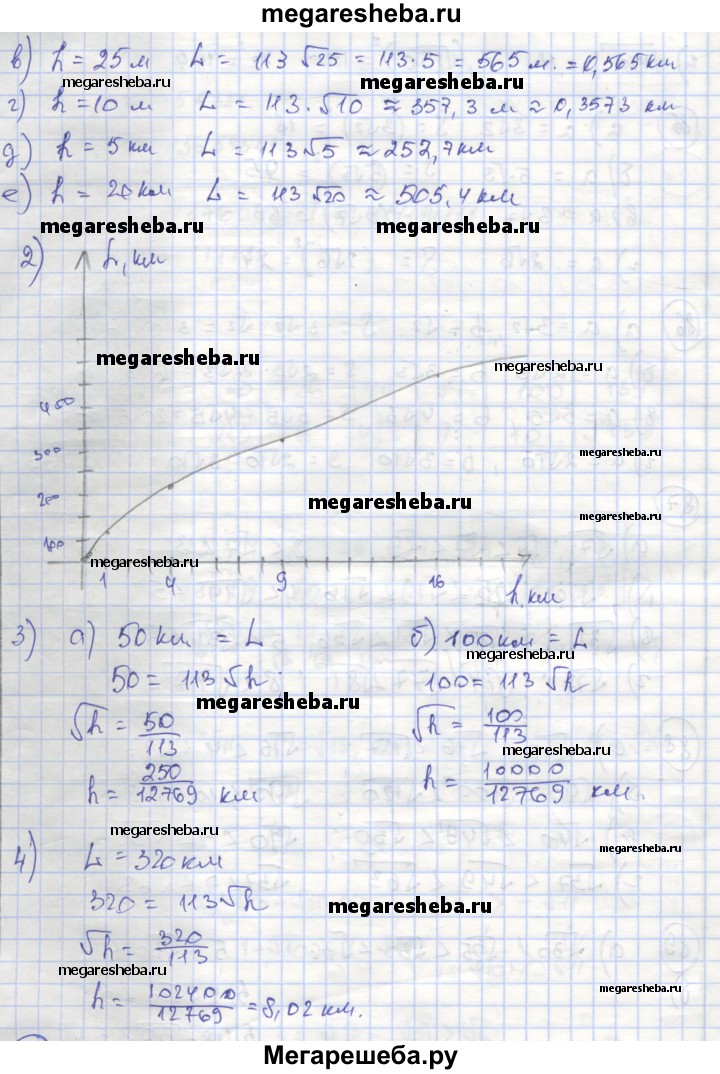 megaresheba.ru
в) h = 25 м L = 113 √25 = 113·5 = 565 м. = 0,565 км
megaresheba.ru megaresheba.ru
г) h = 10 м L = 113·√10 ≈ 357,3 м ≈ 0,3573 км
д) h = 5 км L = 113√5 ≈ 252,7 км
е) h = 20 км L = 113√20 ≈ 505,4 км
megaresheba.ru megaresheba.ru
2) L, км
megaresheba.ru megaresheba.ru
450
300 megaresheba.ru
200 megaresheba.ru
megaresheba.ru
100
megaresheba.ru
1 4 9 16
h, км
3) а) 50 км = L б) 100 км = L
megaresheba.ru
50 = 113√h; 100 = 113 √h
megaresheba.ru
√h = 50/113 √h = 100/113
megaresheba.ru
h = 250/12769 км h = 10000/12769 км.
megaresheba.ru
megaresheba.ru
4) L = 320 км
320 = 113√h
megaresheba.ru
√h = 320/113
megaresheba.ru
megaresheba.ru
h = 102400/12769 = 8,02 км.
Мегарешеба.ру